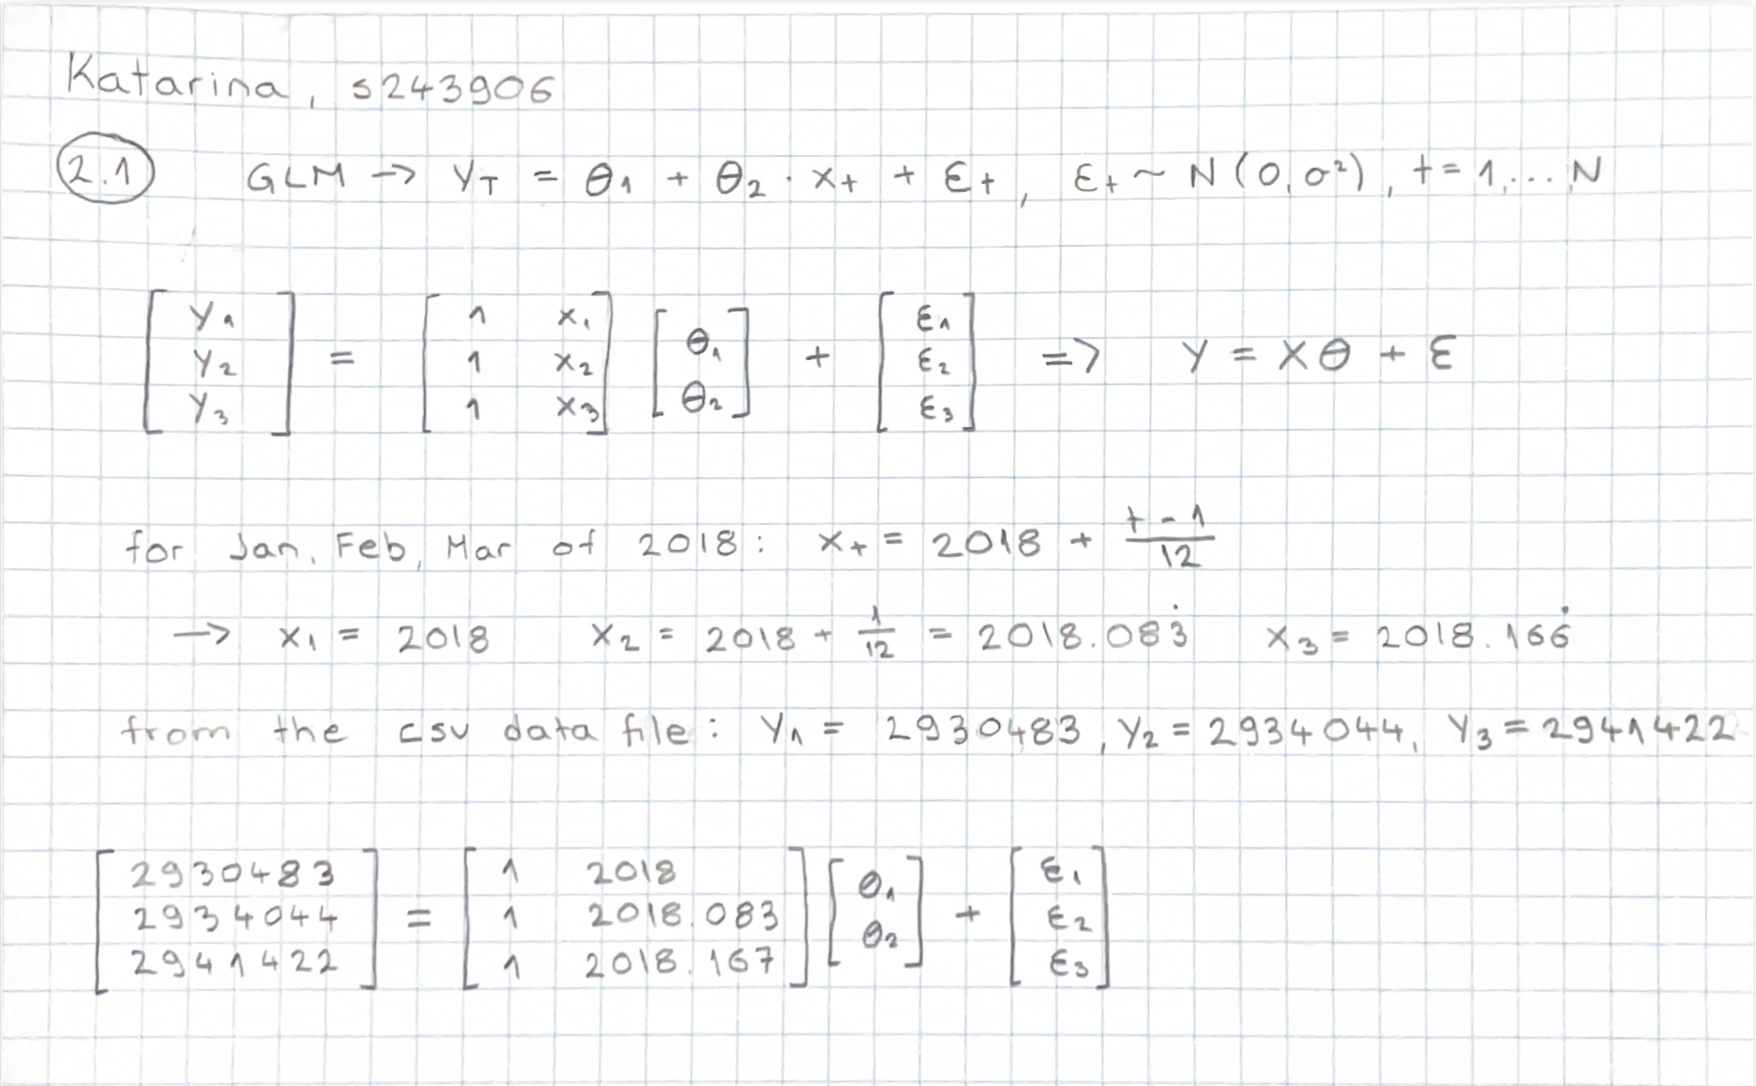 Katarina, s243906
2.1 GLM → Y_T = θ₁ + θ₂ · x_t + ε_t, ε_t ~ N(0, σ²), t = 1, ... N
[ y₁ y₂ y₃ ] = [ 1 x₁ 1 x₂ 1 x₃ ] [ θ₁ θ₂ ] + [ ε₁ ε₂ ε₃ ] => Y = Xθ + ε
for Jan, Feb, Mar of 2018: x_t = 2018 + (t - 1)/12
→ x₁ = 2018 x₂ = 2018 + 1/12 = 2018.083̇ x₃ = 2018.166̇
from the csv data file: Y₁ = 2930483, Y₂ = 2934044, Y₃ = 2941422
[ 2930483 2934044 2941422 ] = [ 1 2018 1 2018.083 1 2018.167 ] [ θ₁ θ₂ ] + [ ε₁ ε₂ ε₃ ]